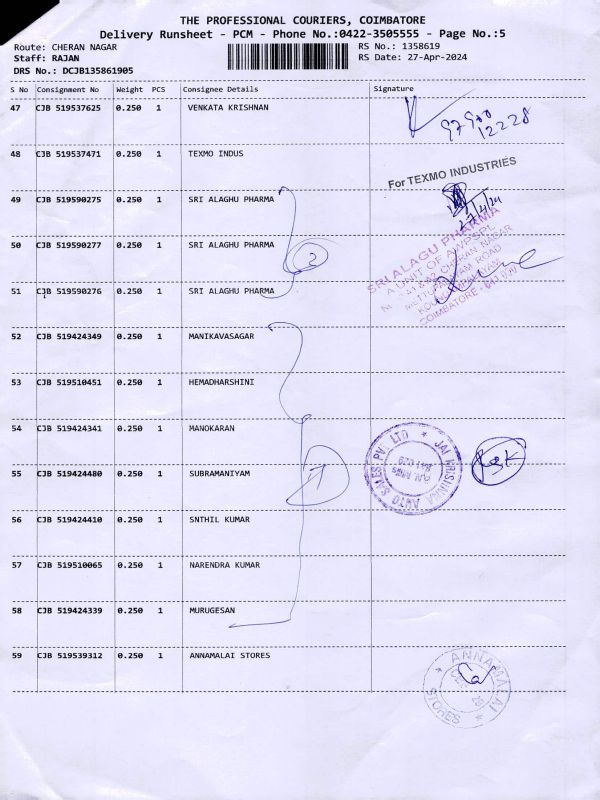 THE PROFESSIONAL COURIERS, COIMBATORE
Delivery Runsheet - PCM - Phone No.:0422-3505555 - Page No.:5
Route: CHERAN NAGAR
RS No.: 1358619
Staff: RAJAN
RS Date: 27-Apr-2024
DRS No.: DCJB135861905
S No Consignment No Weight PCS Consignee Details Signature
47 CJB 519537625 0.250 1 VENKATA KRISHNAN
12228
48 CJB 519537471 0.250 1 TEXMO INDUS
For TEXMO INDUSTRIES
49 CJB 519590275 0.250 1 SRI ALAGHU PHARMA
27/4/24
50 CJB 519590277 0.250 1 SRI ALAGHU PHARMA
3
SRI ALAGU PHARMA
A UNIT OF
CHERAN NAGAR
METTUPALAYAM ROAD
COIMBATORE
51 CJB 519590276 0.250 1 SRI ALAGHU PHARMA
52 CJB 519424349 0.250 1 MANIKAVASAGAR
53 CJB 519510451 0.250 1 HEMADHARSHINI
54 CJB 519424341 0.250 1 MANOKARAN
JAI KRISHNAA AUTO SALES PVT LTD
55 CJB 519424480 0.250 1 SUBRAMANIYAM
7
56 CJB 519424410 0.250 1 SNTHIL KUMAR
57 CJB 519510065 0.250 1 NARENDRA KUMAR
58 CJB 519424339 0.250 1 MURUGESAN
59 CJB 519539312 0.250 1 ANNAMALAI STORES
ANNAMALAI
STORES